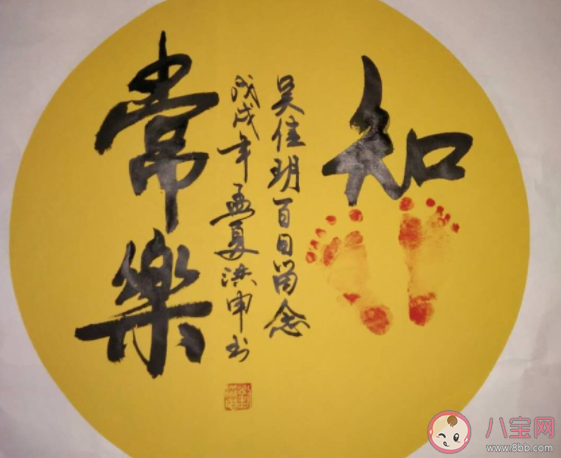 知
常樂
吴佳玥百日留念
戊戌年孟夏洪申书
八宝网
www.8bb.com